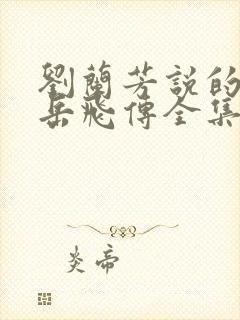 劉蘭芳説的
岳飛傳全集
炎帝